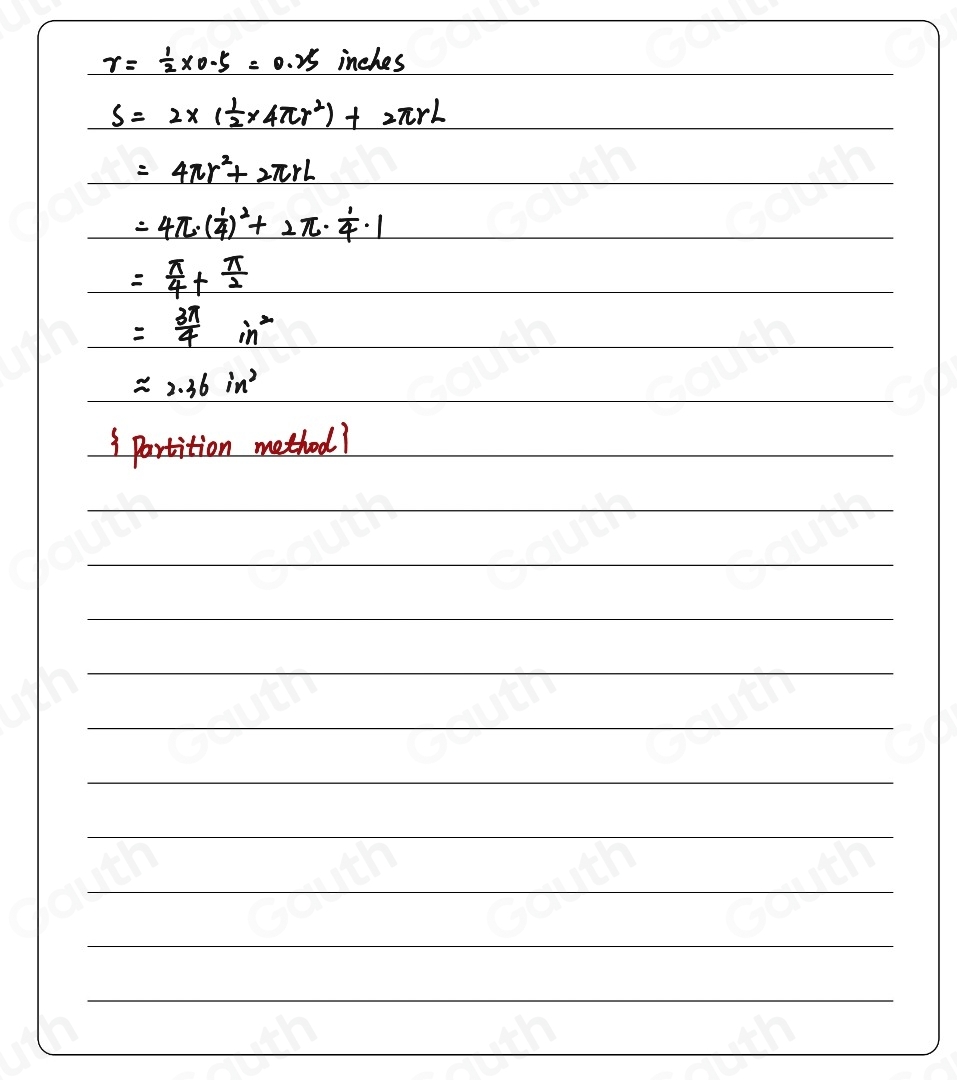 r = 1/2 × 0.5 = 0.25 inches
S = 2 × (1/2 × 4πr²) + 2πrL
= 4πr² + 2πrL
= 4π·(1/4)² + 2π·1/4·1
= π/4 + π/2
= 3π/4 in²
≈ 2.36 in²
{Partition method}